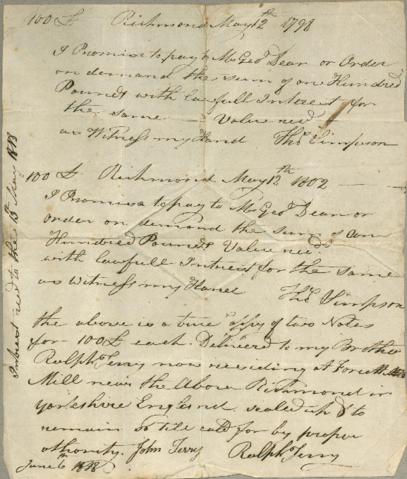 100 £ Richmond May 12th 1798
I Promise to pay to Mr Geo Dean or Order
on demand the sum of one Hundred
Pounds with Lawfull Interest for
the same — Value recd
as Witness my Hand Thos Simpson
100 £ Richmond May 12th 1802
I Promise to pay to Mr Geo Dean or
order on demand the sum of one
Hundred Pounds Value recd
with lawfull Intrest for the same
as Witness my Hand
Thos Simpson
the above is a true Coppy of two Notes
for 100£ each. Delivered to my Brother
Ralph Terry now resideing at
Mill near the Above Richmond in
Yorkshire England sealed up & to
remain so till cald for by proper
othority. John Terry Ralph Terry
June 6 1818
Interest recd to the 13th May 1818